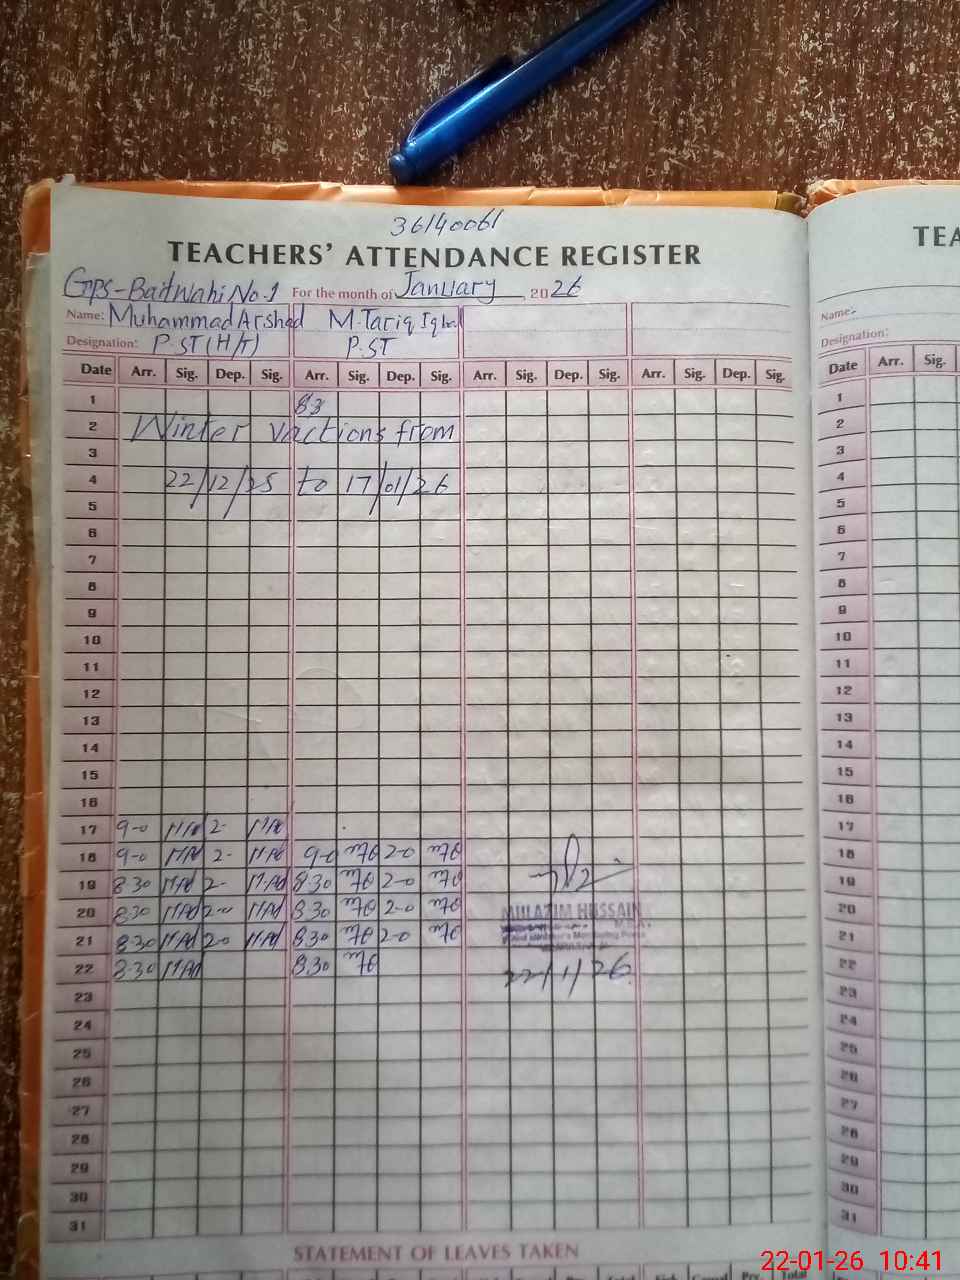 36140061
TEACHERS' ATTENDANCE REGISTER
TEA
Gps-Baitwahi No.1 For the month of January, 2026
Name: Muhammad Arshad M.Tariq Iqbal
Name:
Designation: P.ST (H/T) P.ST
Designation:
Date Arr. Sig. Dep. Sig. Arr. Sig. Dep. Sig. Arr. Sig. Dep. Sig. Arr. Sig. Dep. Sig.
Date Arr. Sig.
1 83
2 Winter vactions from
3
4 22/12/25 to 17/01/26
5
6
7
8
9
10
11
12
13
14
15
16
17 9-0 MAd 2- MAd
18 9-0 MAd 2- MAd 9-0 2-0
19 8.30 MAd 2- MAd 8.30 2-0
20 8.30 MAd 2-0 MAd 8.30 2-0
21 8.30 MAd 2-0 MAd 8.30 2-0
22 8.30 MAd 8.30
23
24
25
26
27
28
29
30
31
MULAZIM HUSSAIN
22/1/26
1
2
3
4
5
6
7
8
9
10
11
12
13
14
15
16
17
18
19
20
21
22
23
24
25
26
27
28
29
30
31
STATEMENT OF LEAVES TAKEN
22-01-26 10:41